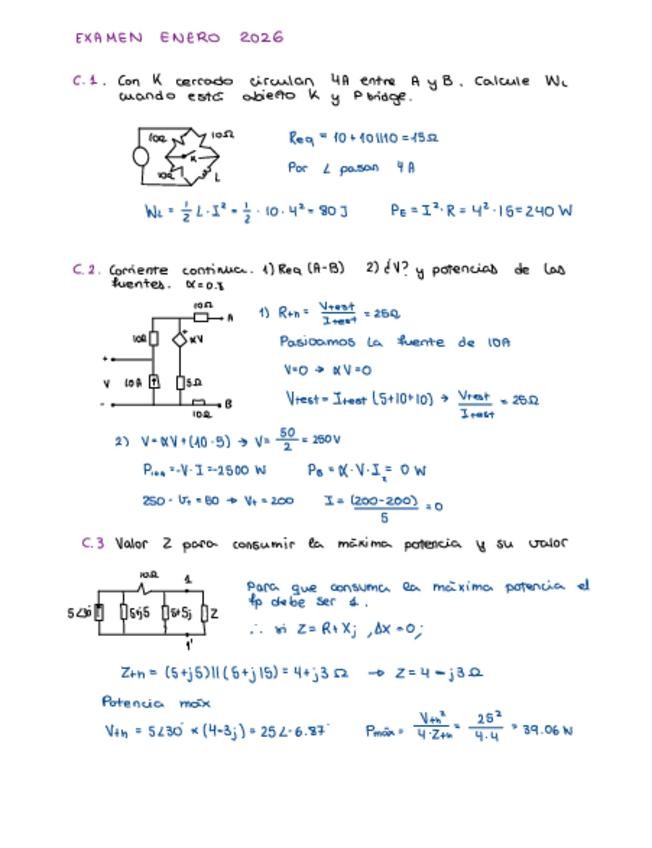 EXAMEN ENERO 2026
C.1. Con K cerrado circulan 4A entre A y B. Calcule WL
cuando está abierto K y P bridge.
10Ω 10Ω
K
10Ω L
Req = 10 + 10||10 = 15Ω
Por L pasan 4A
WL = 1/2 L·I² = 1/2 · 10 · 4² = 80 J PE = I²·R = 4²·15 = 240 W
C.2. Corriente continua. 1) Req (A-B) 2) ¿V? y potencias de las
fuentes. α=0.8
10Ω A
10Ω αV
+
V 10A 5Ω
- B
10Ω
1) Rth = Vtest/Itest = 25Ω
Pasivamos la fuente de 10A
V=0 → αV=0
Vtest = Itest (5+10+10) → Vtest/Itest = 25Ω
2) V = αV + (10·5) → V = 50/2 = 250V
P10A = -V·I = -2500 W Pα = α·V·I = 0 W
250 - V1 = 50 → V1 = 200 I = (200-200)/5 = 0
C.3 Valor Z para consumir la máxima potencia y su valor
10Ω 1
5∠30 5+j5 5+5j Z
1'
Para que consuma la máxima potencia el
fp debe ser 1.
∴ si Z = R + Xj , Δx = 0;
Zth = (5+j5)||(5+j15) = 4+j3 Ω → Z = 4 - j3 Ω
Potencia máx
Vth = 5∠30° × (4-3j) = 25∠-6.87° Pmáx = Vth²/4·Zth = 25²/4·4 = 39.06 W